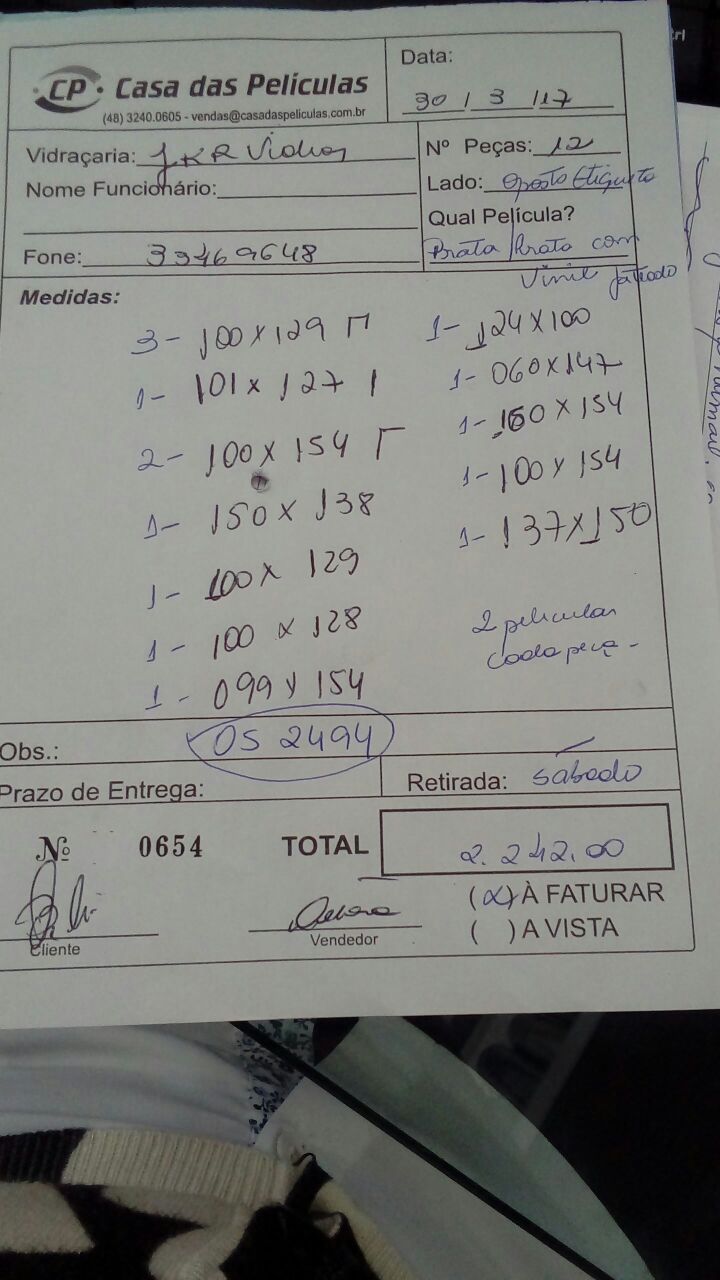 CP · Casa das Películas
(48) 3240.0605 - vendas@casadaspeliculas.com.br
Data:
30 / 3 / 17
Vidraçaria: JKR Vidros
Nome Funcionário:
Fone: 33469648
Nº Peças: 12
Lado: oposto Etiqueta
Qual Película?
Prata Prata com
Vinil jateado
Medidas:
3- 100 x 129
1- 101 x 127
2- 100 x 154
1- 150 x 138
1- 100 x 129
1- 100 x 128
1- 099 x 154
1- 124 x 100
1- 060 x 147
1- 160 x 154
1- 100 x 154
1- 137 x 150
2 peliculas
cada peça -
Obs.: OS 2494
Prazo de Entrega:
Retirada: sábado
Nº 0654
TOTAL 2.242.00
Cliente
Vendedor
(x) À FATURAR
( ) A VISTA